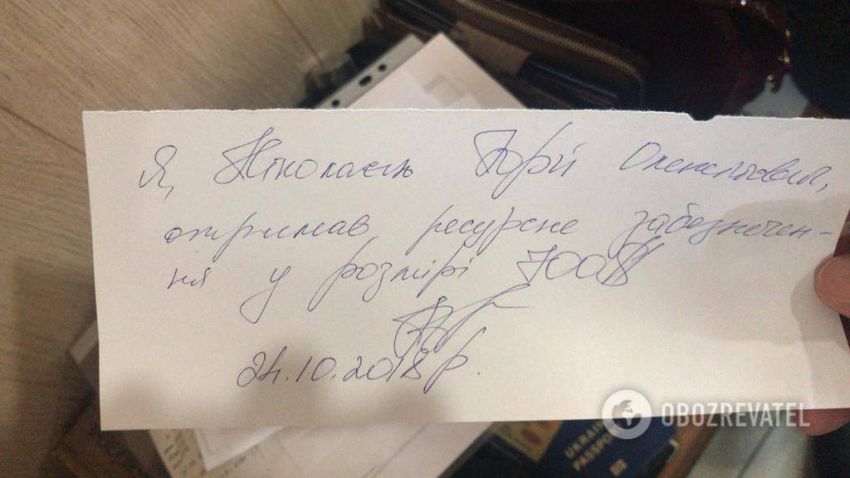 Я, Ніколаєнко Юрій Олексійович,
отримав ресурсне забезпечен-
ня у розмірі 700$
24.10.2018 р.
OBOZREVATEL
UKRAINE
PASSPORT